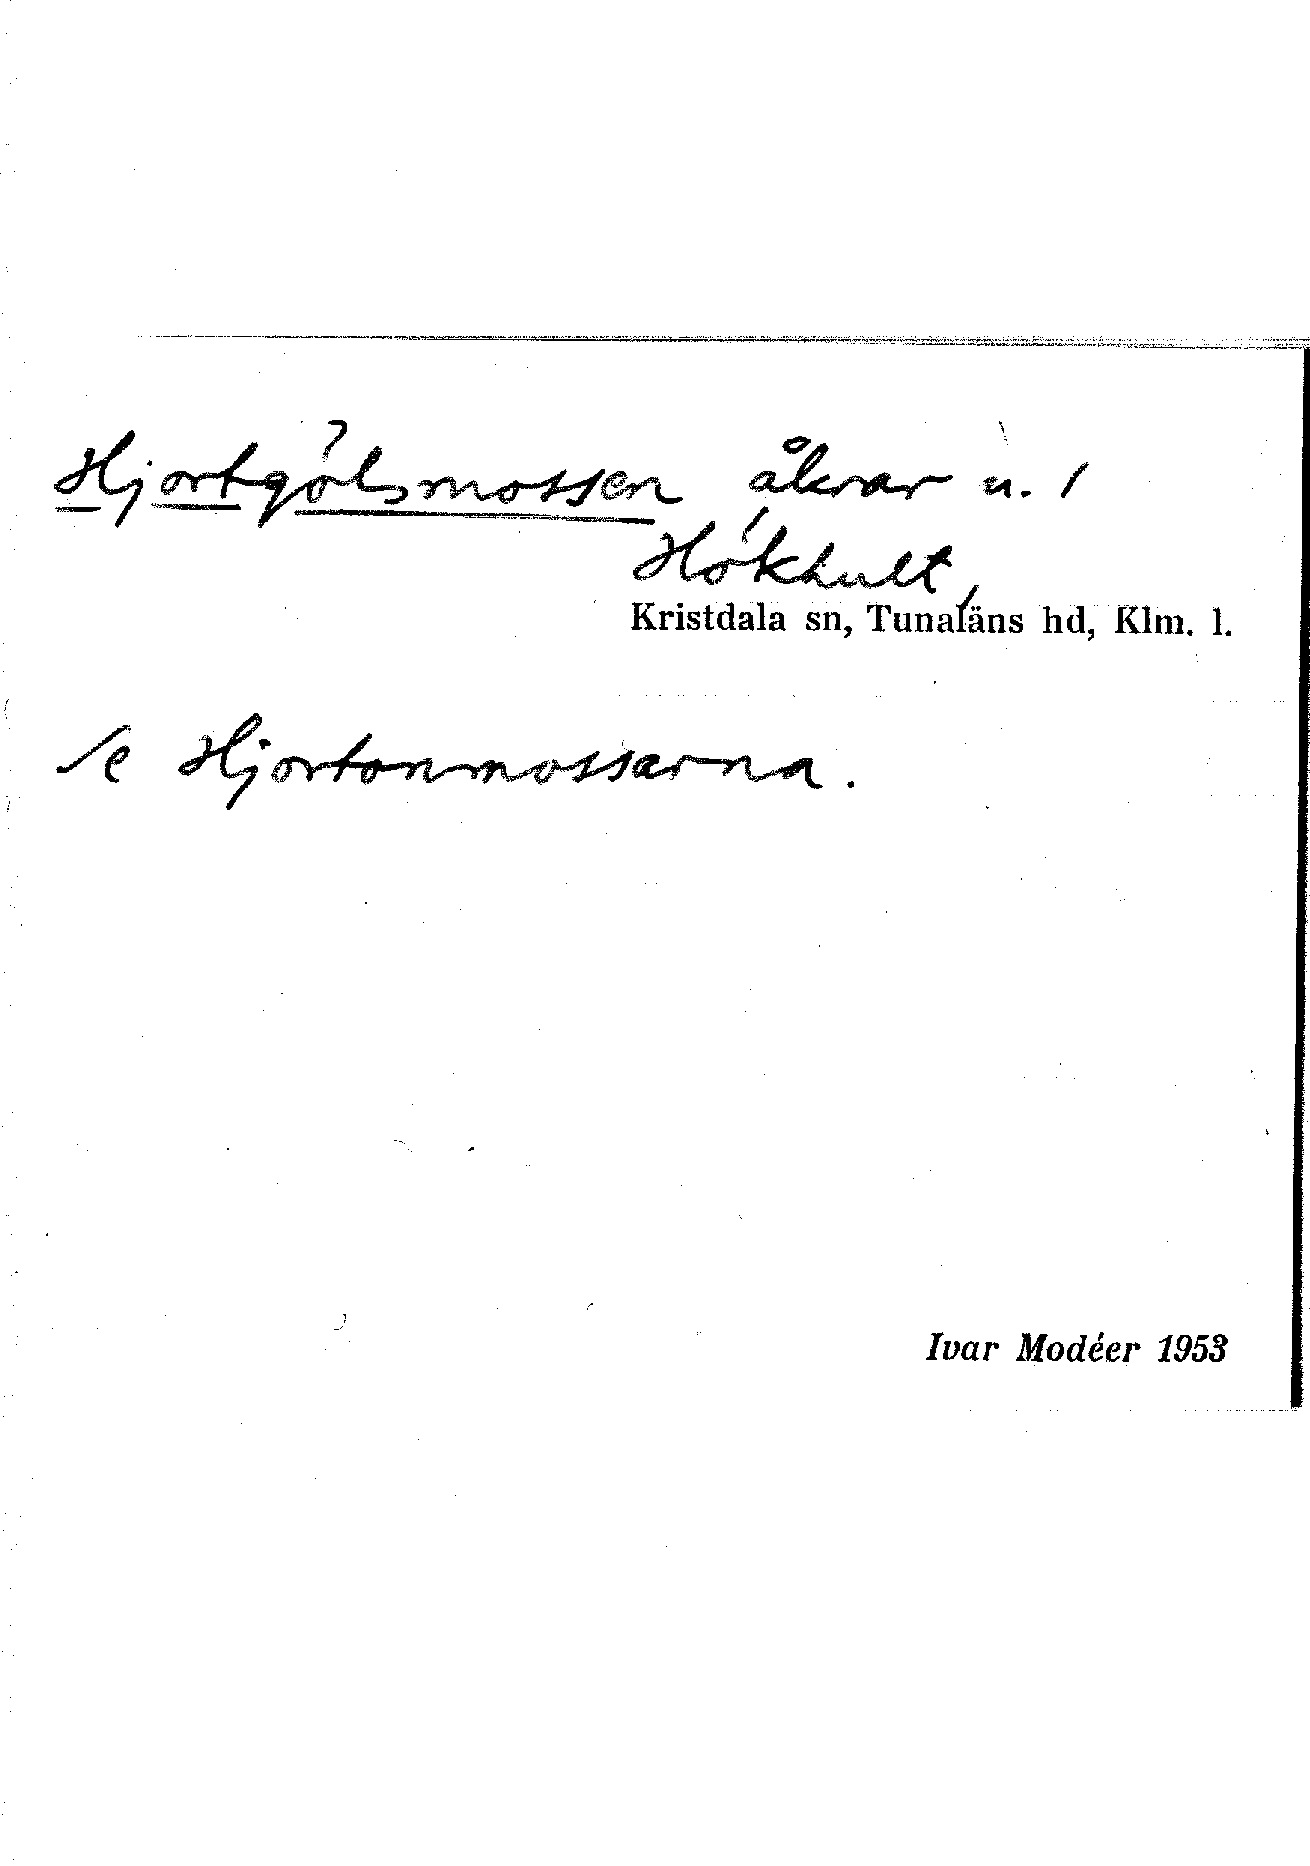 Hjortgölsmossen åkrar u. 1
Hökhult,
Kristdala sn, Tunaläns hd, Klm. l.
Se Hjortonmossarna.
Ivar Modéer 1953